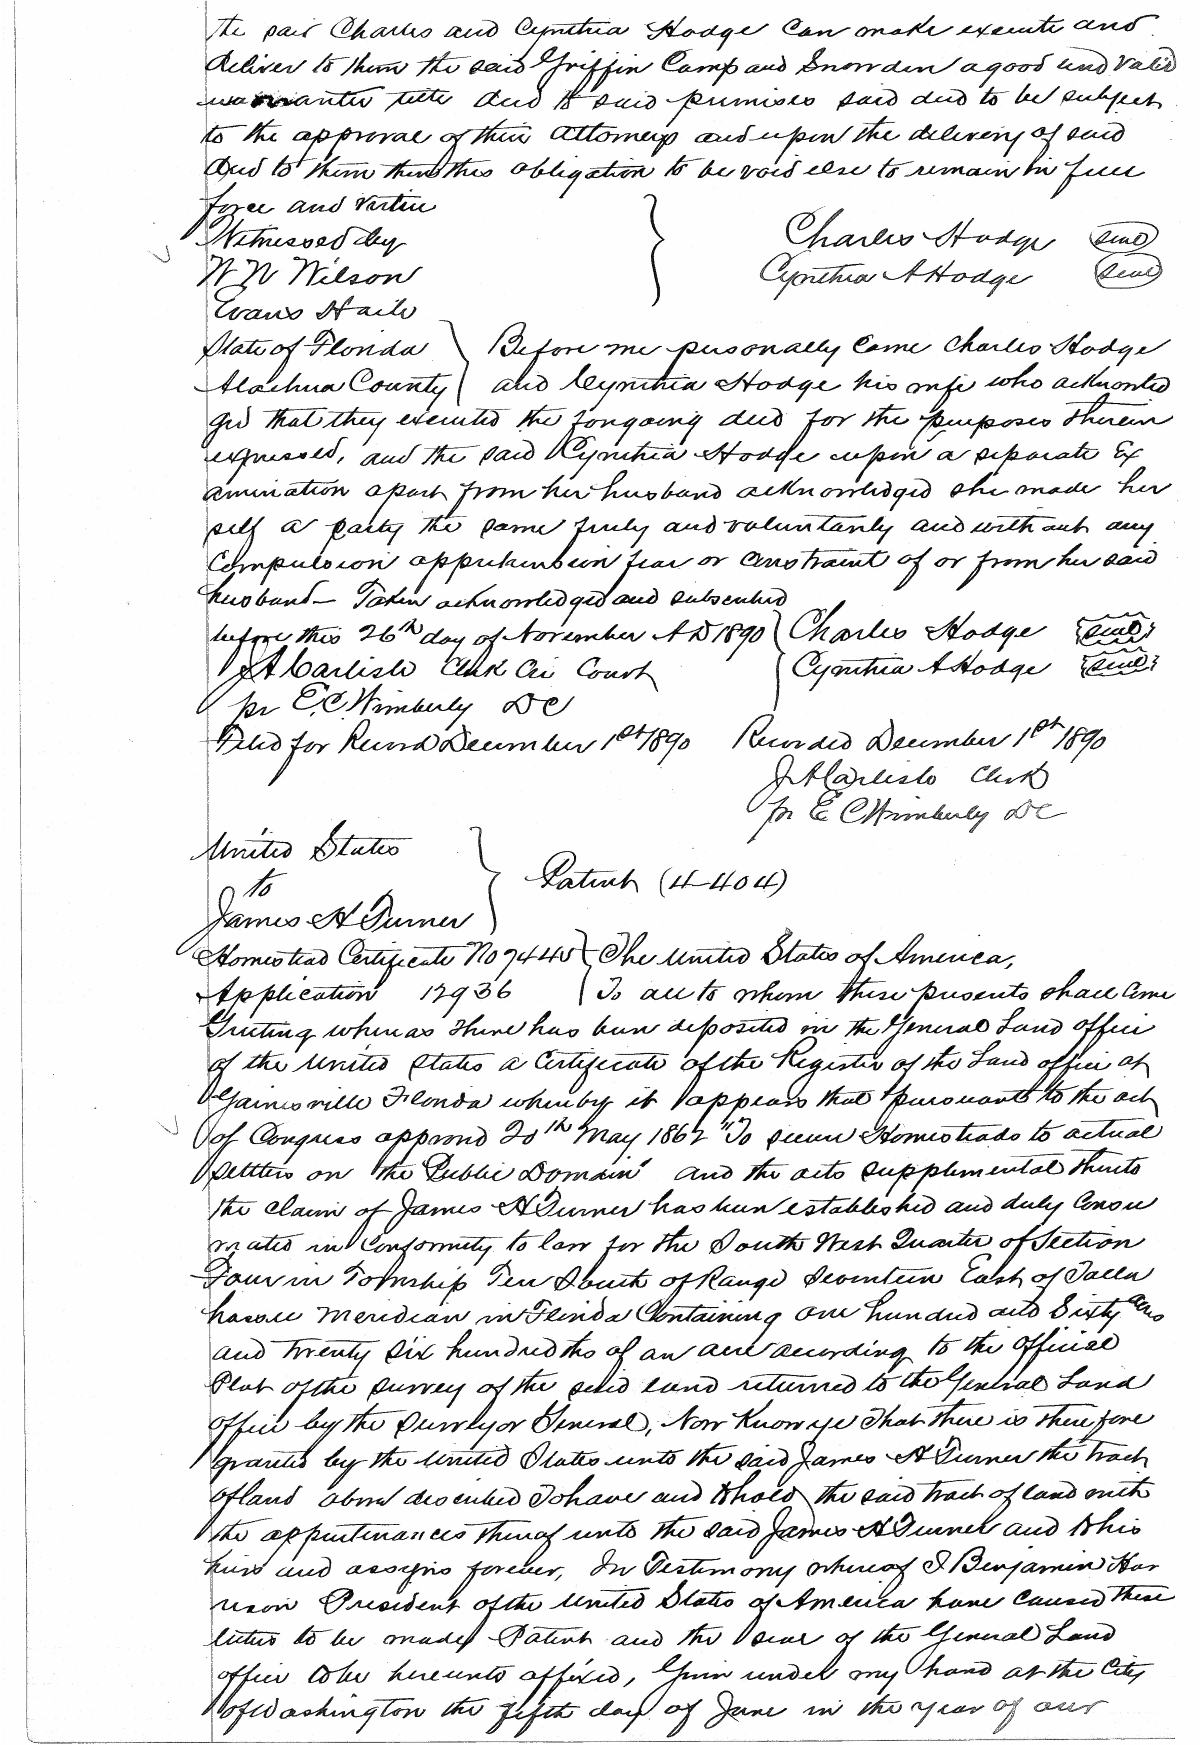 the said Charles and Cynthia Hodge can make execute and
deliver to them the said Griffin Camp and Snowden a good and valid
warrantee title deed to said premises said deed to be subject
to the approval of their attorneys and upon the delivery of said
deed to them then this obligation to be void else to remain in full
force and virtue
Witnessed by
Charles Hodge seal
W N Wilson
Cynthia A Hodge seal
Evans Haile
State of Florida
Alachua County
Before me personally came Charles Hodge
and Cynthia Hodge his wife who acknowled
ged that they executed the forgoing deed for the purposes therein
expressed, and the said Cynthia Hodge upon a separate Ex
amination apart from her husband acknowledged she made her
self a party the same freely and voluntarily and without any
Compulsion apprehension fear or constraint of or from her said
husband – Taken acknowledged and subscribed
before this 26th day of November A D 1890
Charles Hodge seal
J A Carlisle Clerk Cir Court
Cynthia A Hodge seal
pr E. C. Wimberly DC
Filed for Record December 1st 1890 Recorded December 1st 1890
J A Carlisle Clerk
pr E C Wimberly DC
United States
to
James H Turner
Patent (4-404)
Homestead Certificate No 7445
Application 12936
The United States of America,
To all to whom these presents shall come
Greeting whereas there has been deposited in the General Land office
of the United States a Certificate of the Register of the Land office at
Gainesville Florida whereby it appears that pursuant to the act
of Congress approved 20th May 1862 "To secure Homesteads to actual
settlers on the Public Domain" and the acts supplemental thereto
the claim of James H Turner has been established and duly consu
mated in conformity to law for the South West Quarter of Section
Four in Township Ten South of Range Seventeen East of Talla
hassee Meridian in Florida Containing one hundred and Sixty acres
and twenty six hundredths of an acre according to the official
Plat of the survey of the said land returned to the General Land
office by the Surveyor General, Now Know ye That there is therefore
granted by the United States unto the said James H Turner the tract
of land above described To have and to hold the said tract of land with
the appurtenances thereof unto the said James H Turner and to his
heirs and assigns forever, In Testimony whereof I Benjamin Har
rison President of the United States of America have caused these
letters to be made Patent and the seal of the General Land
office to be hereunto affixed, Given under my hand at the City
of Washington the fifth day of June in the year of our